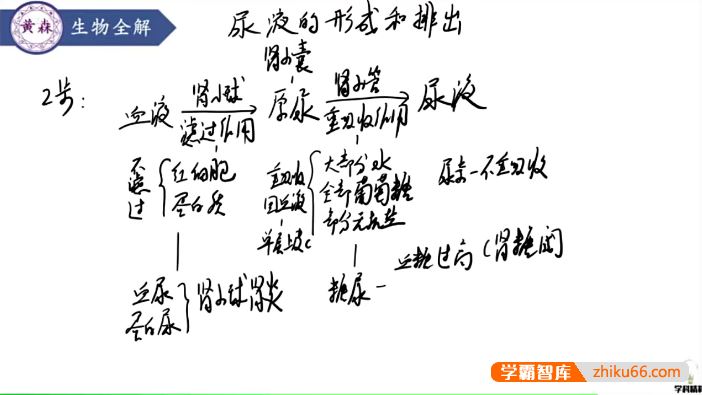 黄森 生物全解
尿液的形成和排出
肾小囊
2步：
血液 肾小球 滤过作用 原尿 肾小管 重吸收作用 尿液
不滤过 红细胞 蛋白质
重吸收回血液 单层上皮C
大部分水
全部葡萄糖
部分无机盐
尿素一不重吸收
血尿
蛋白尿
肾小球肾炎
糖尿一
血糖过高（肾糖阈
学霸智库 zhiku66.com
学科精